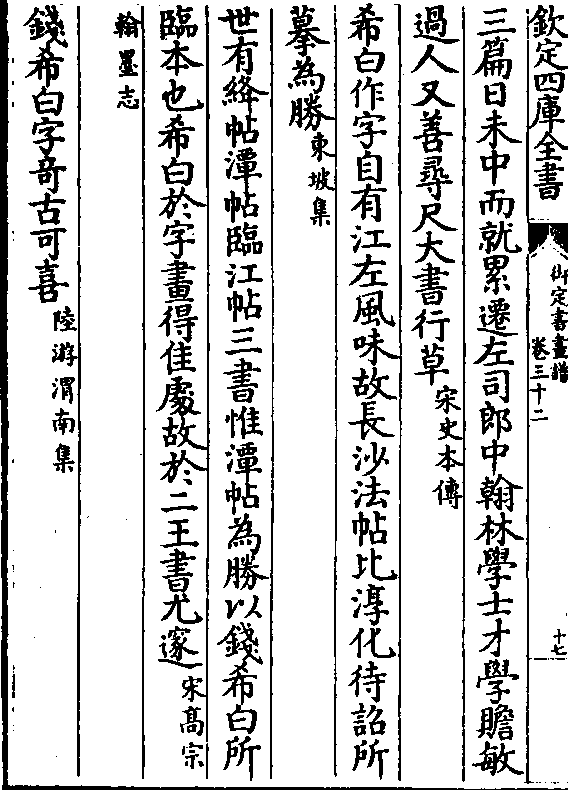 欽定四庫全書
御定書畫譜
卷三十二
十七
三篇日未中而就累遷左司郎中翰林學士才學贍敏
過人又善尋尺大書行草宋史本傳
希白作字自有江左風味故長沙法帖比淳化待詔所
摹為勝東坡集
世有絳帖潭帖臨江帖三書惟潭帖為勝以錢希白所
臨本也希白於字畫得佳處故於二王書尤邃宋高宗
翰墨志
錢希白字竒古可喜陸游渭南集